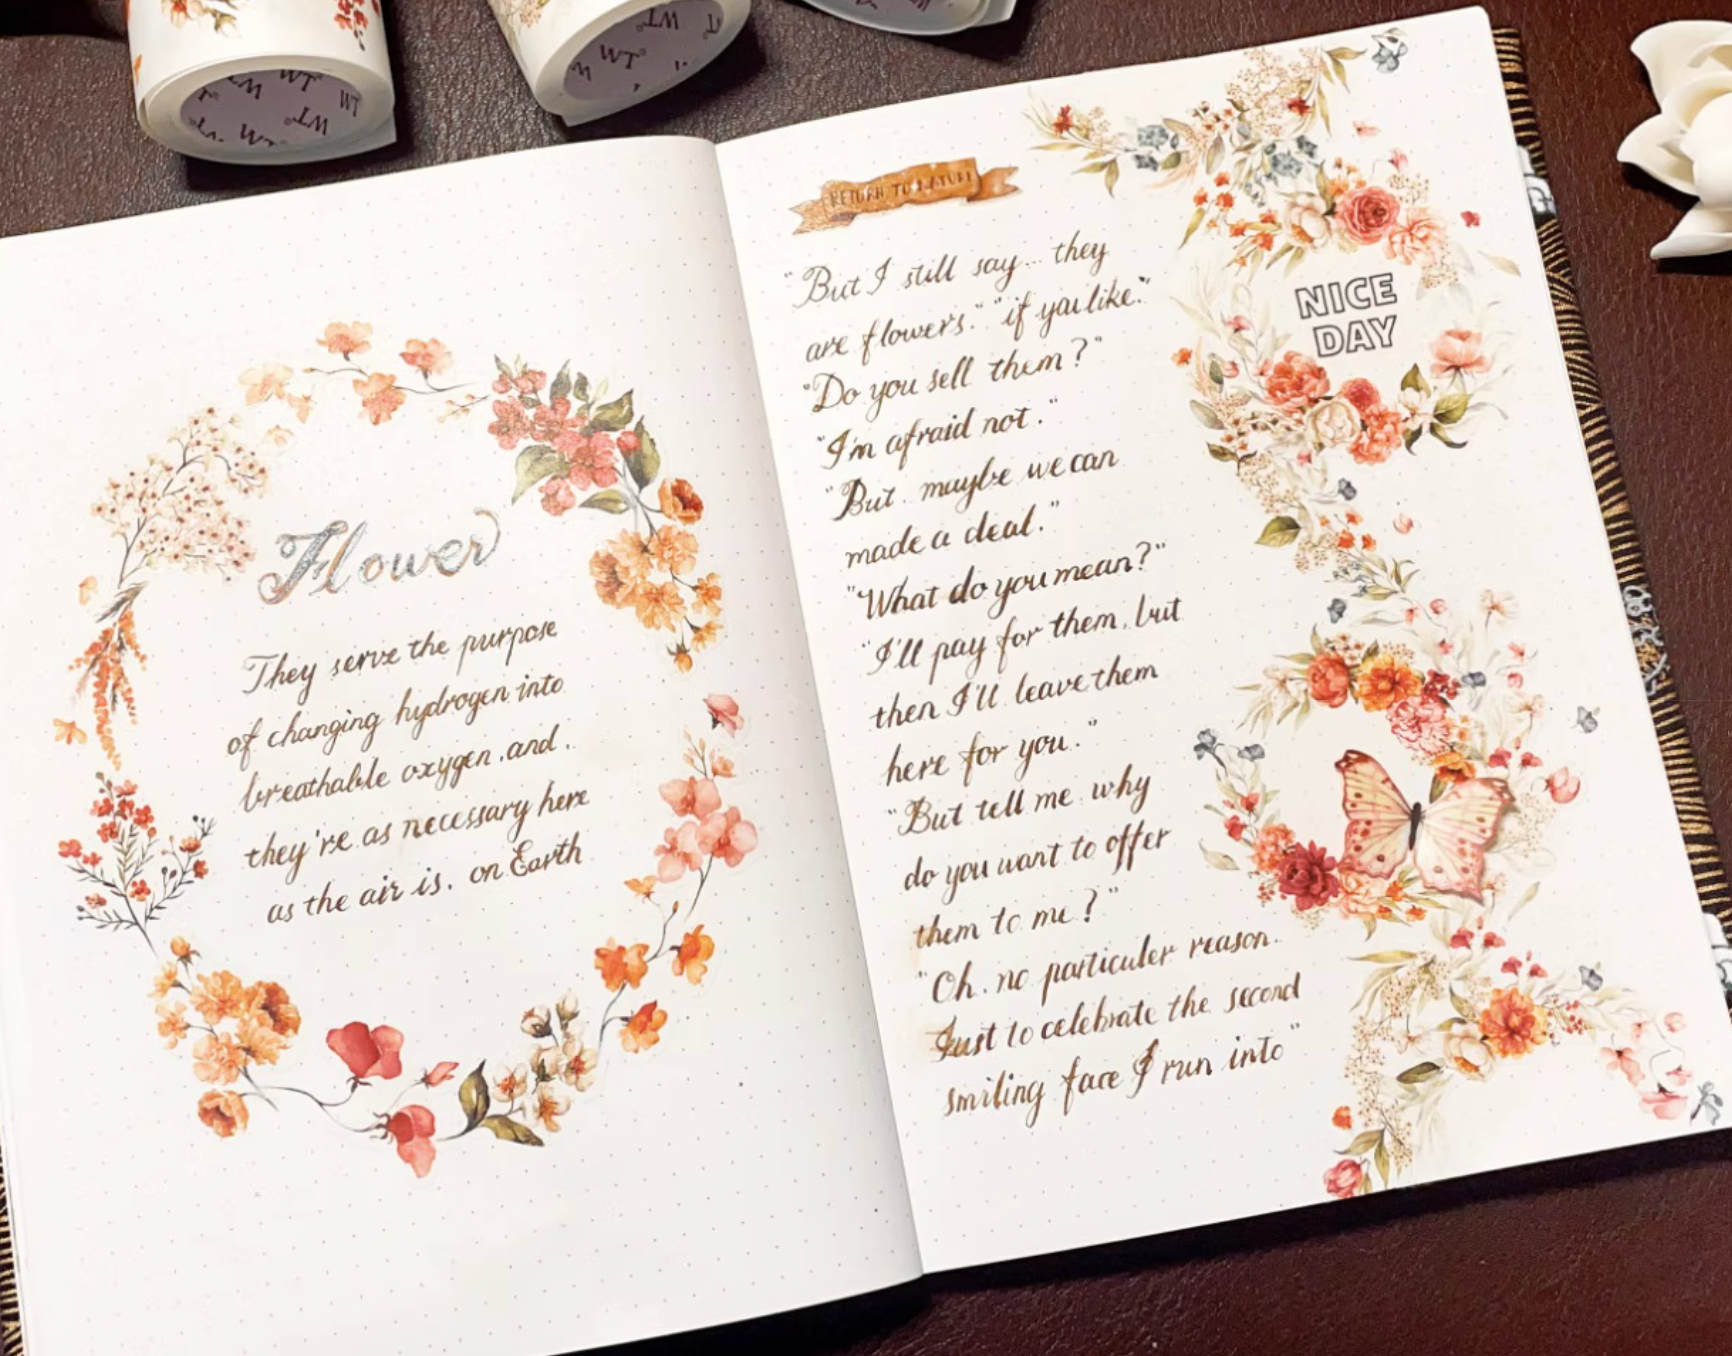 WT°
WT°
WT
WT°
WT°
WT°
WT°
W
Flower
They serve the purpose
of changing hydrogen into
breathable oxygen, and.
they're as necessary here
as the air is. on Earth
RETURN TO NATURE
"But I still say... they
are flowers." "if you like."
"Do you sell them?"
"I'm afraid not."
"But. maybe we can
made a deal."
"What do you mean?"
"I'll pay for them, but
then I'll leave them
here for you."
"But tell me why
do you want to offer
them to me?"
"Oh. no particuler reason.
Just to celebrate the second
smiling face I run into"
NICE
DAY